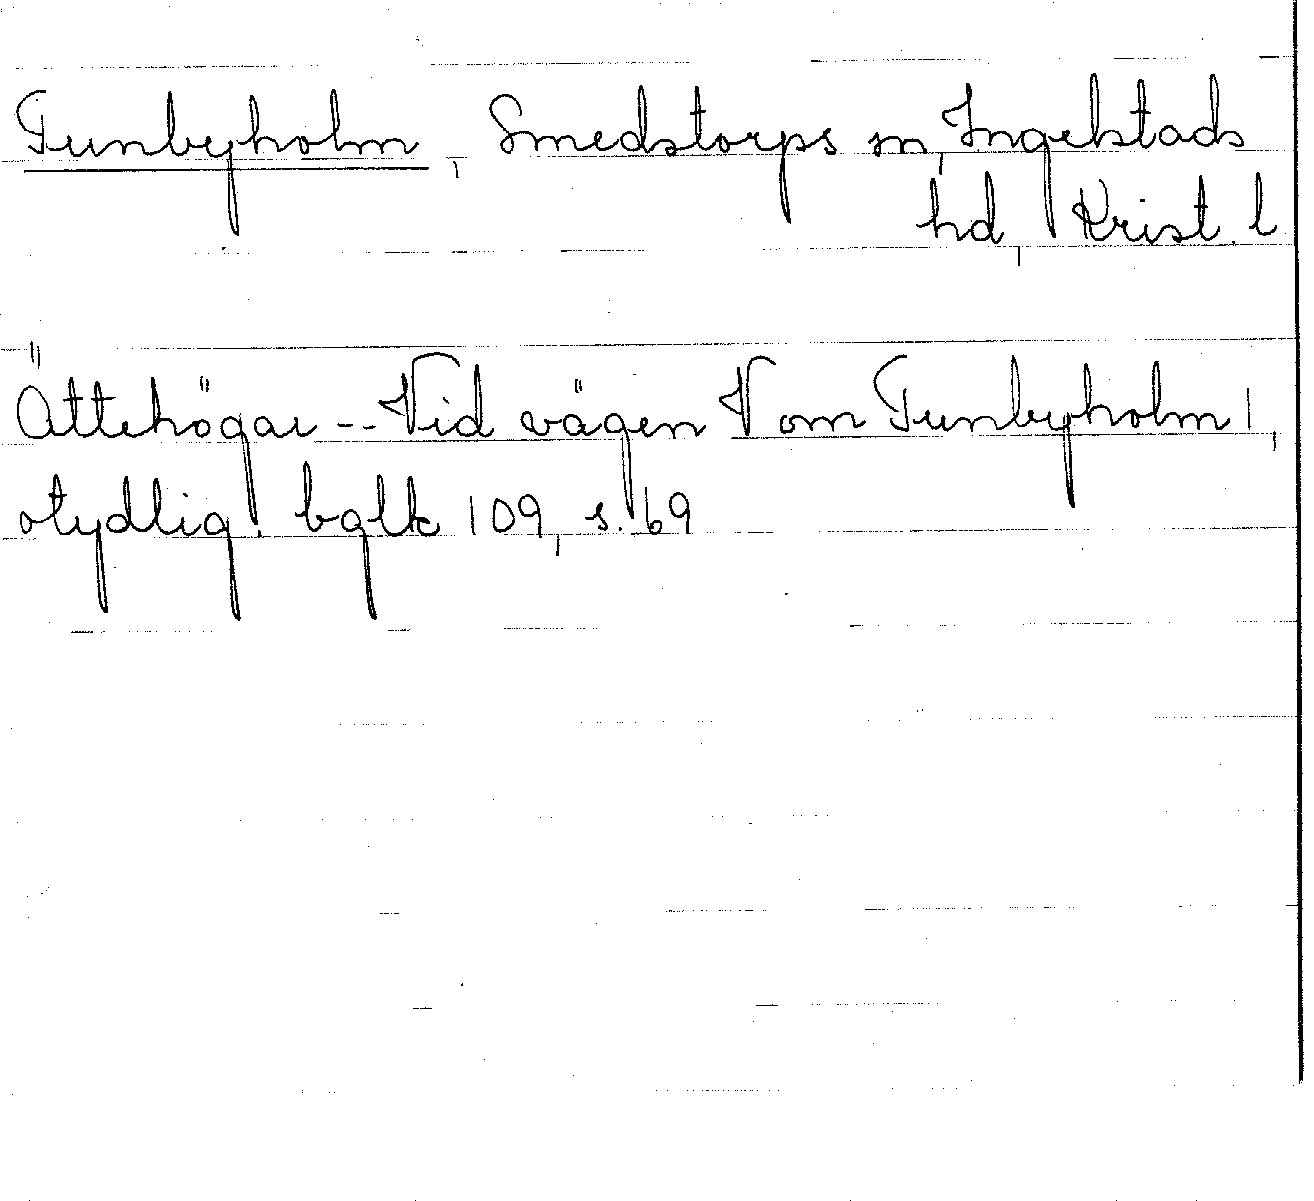 Tunbyholm, Smedstorps sn, Ingelstads
hd, Krist. l
Ättehögar -- Vid vägen V om Tunbyholm 1,
otydlig. bglk 109, s. 69